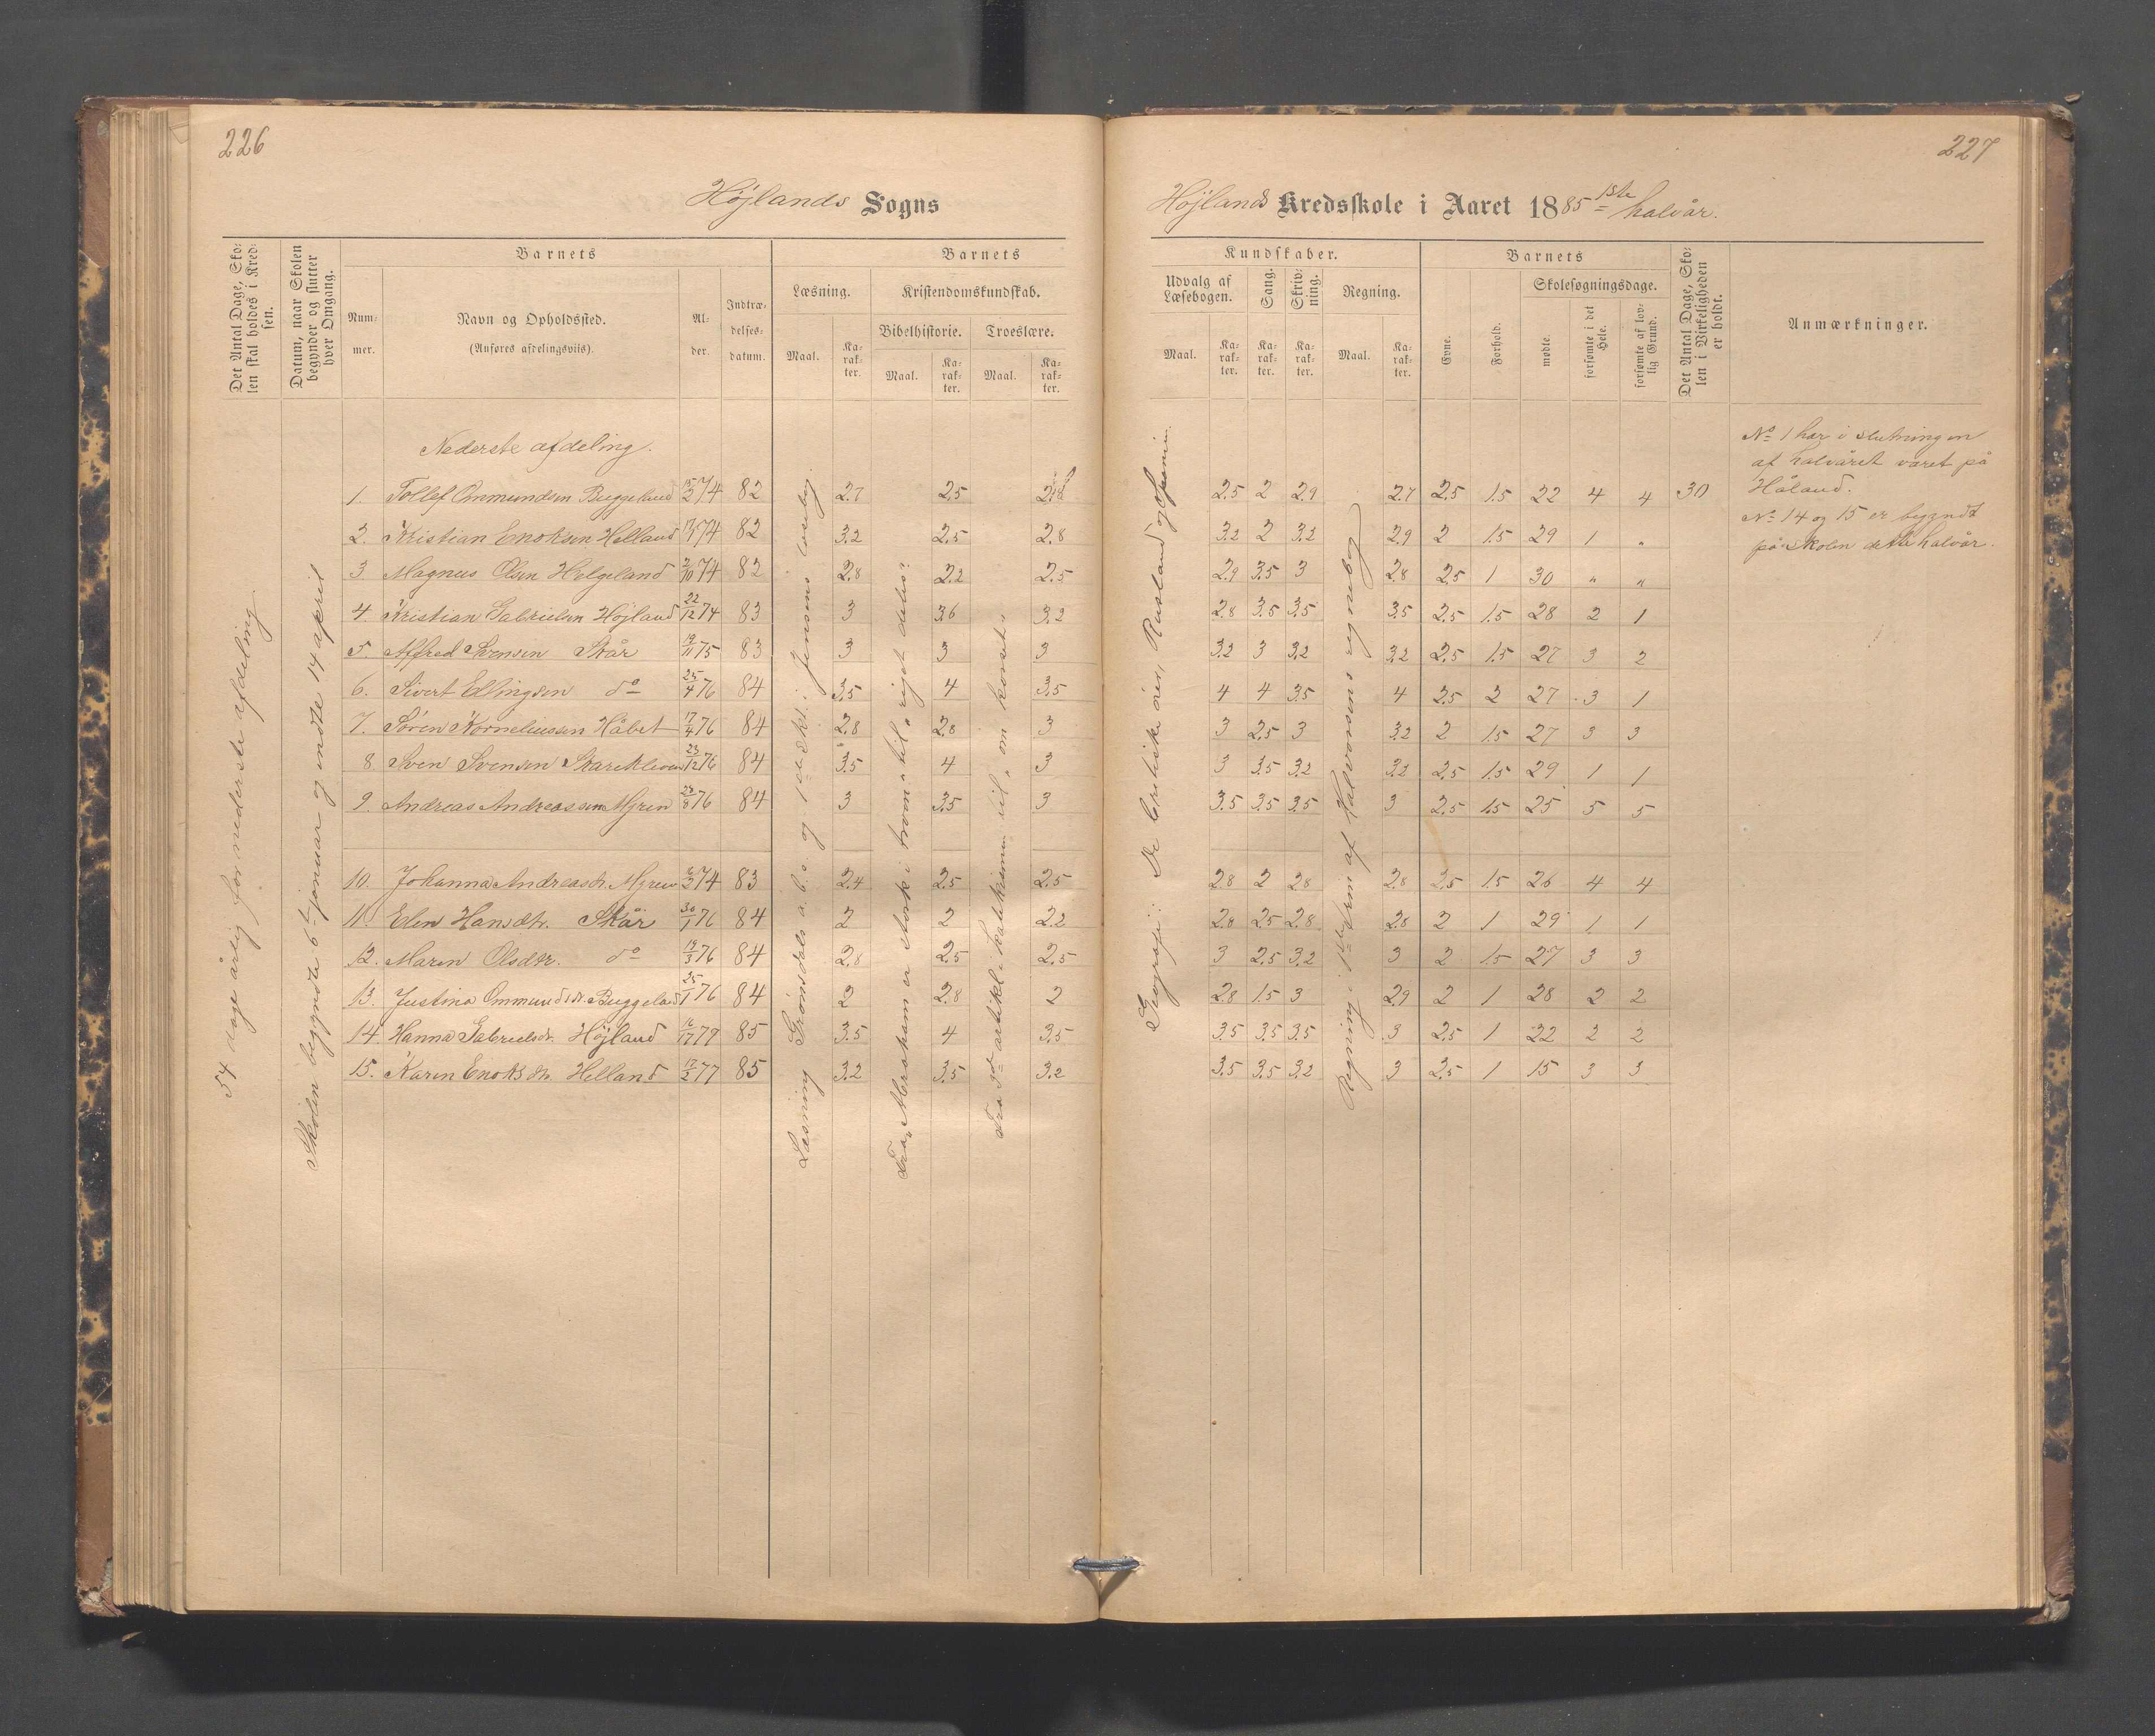 226
Höjlands Sogns
Det Antal Dage, Skolen skal holdes i Kredsen.
Datum, naar Skolen begynder og slutter hver Omgang.
Barnets
Nummer.
Navn og Opholdssted.
(Anføres afdelingsviis).
Alder.
Indtrædelsesdatum.
Barnets
Læsning.
Maal.
Karakter.
Kristendomskundskab.
Bibelhistorie.
Maal.
Karakter.
Troeslære.
Maal.
Karakter.
54 dage årlig for nederste afdeling
Skolen begyndte 6t januar og endte 14 apr
Nederste afdeling.
1. Tollef Ommundsen Buggeland 15/2 74 82 2.7 2.5
2. Kristian Enoksen Helland 74 82 3.2 2.5 2.8
3 Magnus Olsen Helgeland 2/10 74 82 2.8 2.2 2.5
4. Kristian Gabrielsen Höjland 22/12 74 83 3 3.6 3.2
5. Alfred Svensen Skår 19/11 75 83 3 3 3
6. Sivert Ellingsen do 25/4 76 84 3.5 4 3.5
7. Sören Korneliussen Håbet 17/4 76 84 2.8 2.8 3
8 Sven Svensen Skarekleven 23/12 76 84 3.5 4 3
9. Andreas Andreassen Myren 28/8 76 84 3 3.5 3
10. Johanna Andreasdr. Myren 6/2 74 83 2.4 2.5 2.5
11. Elen Hansdtr. Skår 30/1 76 84 2 2 2.2
12. Maren Olsdtr. do 19/3 76 84 2.8 2.5 2.5
13. Justina Ommundsdr. Buggeland 25/1 76 84 2 2.8 2
14. Hanna Gabrielsdr. Höjland 79 85 3.5 4 3.5
15. Karen Enoksdr. Helland 17/2 77 85 3.2 3.5 3.2
Læsning Grønsdals a.b.c. og 1ste skt. i Jensens læsebog
Fra Abrahams til riget deles
Fra 3die artikel i katekismen til om korset
227
Höjlands Kredsskole i Aaret 1885 1ste halvår.
Kundskaber.
Udvalg af Læsebogen.
Maal.
Karakter.
Sang.
Karakter.
Skrivning.
Karakter.
Regning.
Maal.
Karakter.
Barnets
Evne.
Forhold.
Skolesøgningsdage.
mødte.
forsømte i det Hele.
forsømte af lovlig Grund.
Det Antal Dage, Skolen i Virkeligheden er holdt.
Anmærkninger.
Geografi: De britiske öer, Rusland og Spanien.
Regning i 1ste trin af Halvorsens regnebog
2.5 2 2.9 2.7 2.5 1.5 22 4 4 30
3.2 2 3.2 2.9 2 1.5 29 1 "
2.9 3.5 3 2.8 2.5 1 30 " "
2.8 3.5 3.5 3.5 2.5 1.5 28 2 1
3.2 3 3.2 3.2 2.5 1.5 27 3 2
4 4 3.5 4 2.5 2 27 3 1
3 2.5 3 3.2 2 1.5 27 3 3
3 3.5 3.2 3.2 2.5 1.5 29 1 1
3.5 3.5 3.5 3 2.5 1.5 25 5 5
2.8 2 2.8 2.8 2.5 1.5 26 4 4
2.8 2.5 2.8 2.8 2 1 29 1 1
3 2.5 3.2 3 2 1.5 27 3 3
2.8 1.5 3 2.9 2 1 28 2 2
3.5 3.5 3.5 3 2.5 1 22 2 2
3.5 3.5 3.2 3 2.5 1 15 3 3
No 1 har i slutningen
af halvåret været på
Håland.
No 14 og 15 er begyndt
på skolen dette halvår.